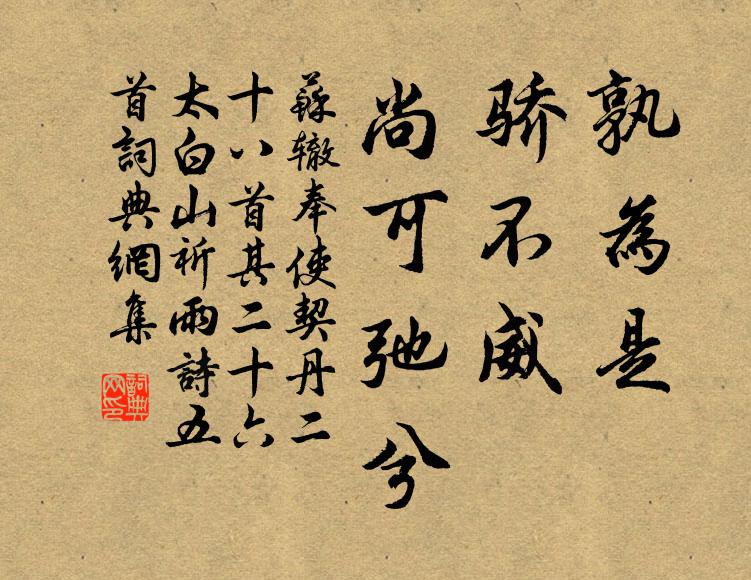 孰為是
骄不威
尚可弛兮
蘇辙奉使契丹二
十八首其二十六
太白山祈雨詩五
首詞典網集
詞典網印